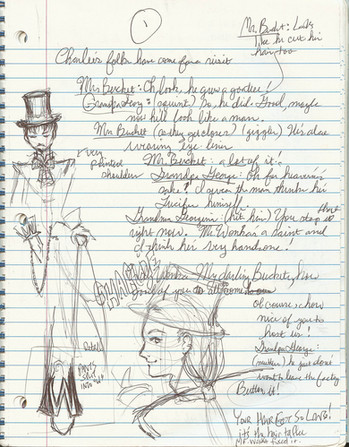 1
Mr. Bucket: Looks
like he cut his
hair too
Charlie's folks have come for a visit
Mrs Bucket: Oh look, he grew a goatee!
Grandpa George: (squint) So, he did. Good, maybe
now he'll look like a man.
Mrs Bucket (as they get closer) (giggles) It's also
wearing eye liner
Very
pointed
shoulder
Mr. Bucket: a lot of it!
Grandpa George: Oh for heaven's
sake! I swear the man thinks he's
Lucifer himself!
Grandma Georgina: (hits him) You stop that
right now. Mr. Wonka's a saint and
I think he's very handsome!
CHARLIE
Wonka: My darling Buckets, how
nice of you to all come
Of course, how
nice of you to
host us!
Grandpa George:
(mutters) he just doesn't
want to leave the factory
Button it!
Detail
W
YOUR HAIR GOT SO LONG!
it's the hair taffee
Mr. Wonka fixed it.